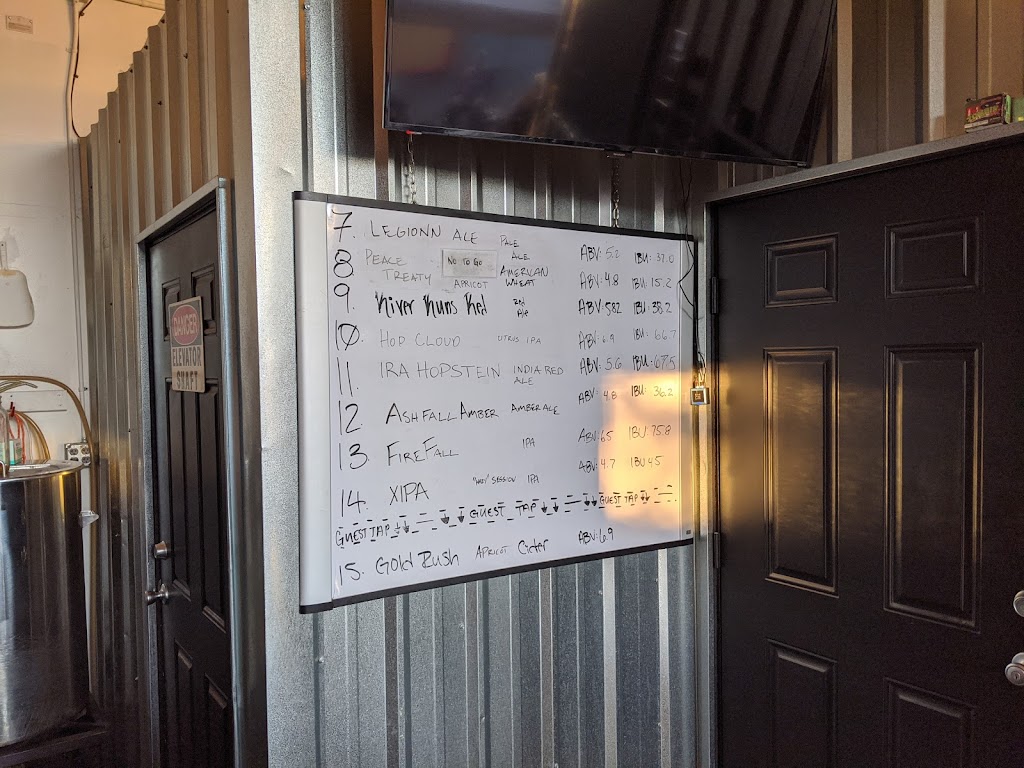 7. LEGIONN ALE PALE ALE ABV: 5.2 IBU: 37.0
8. PEACE TREATY No To Go APRICOT AMERICAN WHEAT ABV: 4.8 IBU: 15.2
9. River Runs Red Red Ale ABV: 5.82 IBU: 38.2
10. HOP CLOUD CITRUS IPA ABV: 6.9 IBU: 66.7
11. IRA HOPSTEIN INDIA RED ALE ABV: 5.6 IBU: 67.5
12 ASHFALL AMBER AMBER ALE ABV: 4.8 IBU: 36.2
13. FIREFALL IPA ABV: 6.5 IBU: 75.8
14. XIPA "HAZY" SESSION IPA ABV: 4.7 IBU 45
GUEST TAP GUEST TAP GUEST TAP
15. Gold Rush APRICOT Cider ABV: 6.9
DANGER
ELEVATOR
SHAFT